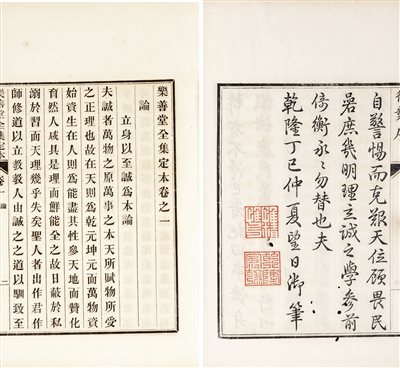 自警惕而克艱天位顧畏民
碞庶幾明理立誠之學參前
倚衡永永勿替也夫
乾隆丁巳仲夏望日御筆
樂善堂全集定本卷之一
論
立身以至誠爲本論
夫誠者萬物之原萬事之本天所賦物所受
之正理也故在天則爲乾元坤元而萬物資
始資生在人則爲能盡其性參天地而贊化
育然人咸具是理而鮮能全之故日蔽於私
溺於習而天理幾乎失矣聖人者出作君作
師修道以立教教人由誠之之道以馴致至
樂善堂全集定本 卷一 論 一